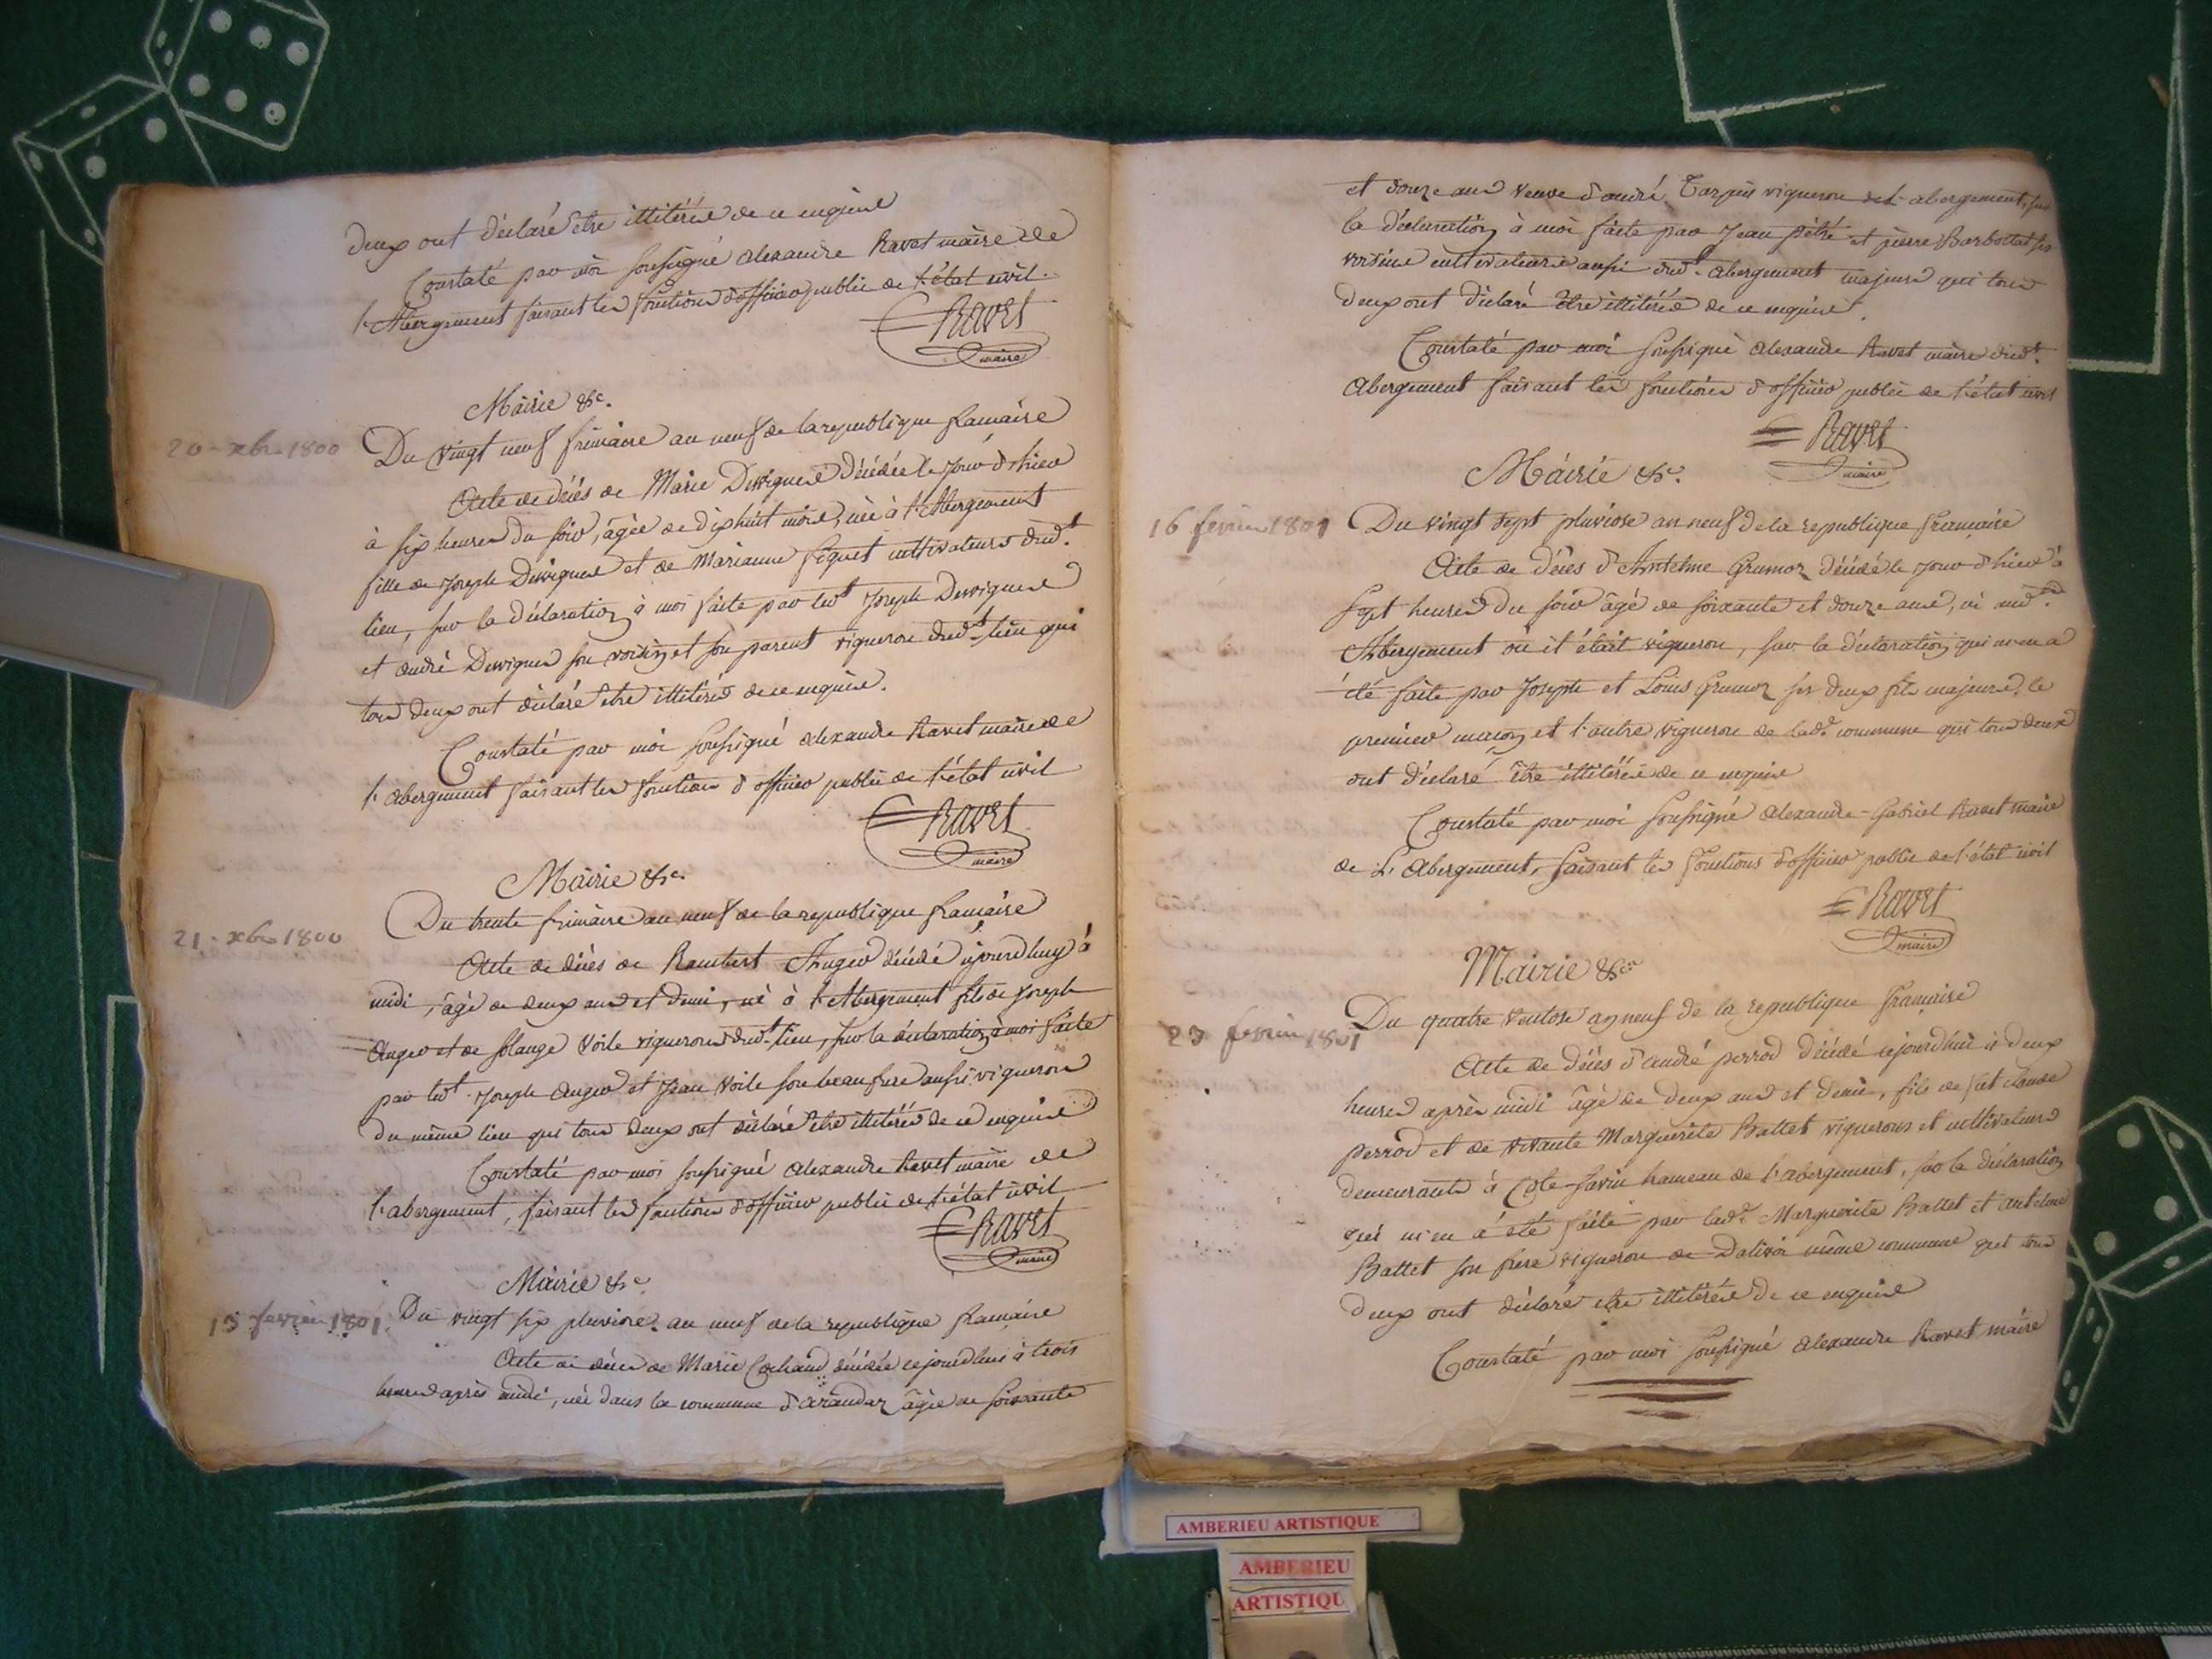 deux ont déclaré être illitérés de ce enquis
Constaté par moi soussigné alexandre Ravet maire de
l'Abergement faisant les fonctions d'officier public de l'état civil.
Ravet
maire
Mairie &c.
20 - xbre 1800
Du vingt neuf frimaire an neuf de la republique française
Acte de décès de Marie Dervigue décédée le jour d'hier
à six heures du soir, âgée de dix huit mois, née à l'Abergement
fille de Joseph Dervigue et de Marianne cultivateurs dud.t
lieu, sur la déclaration à moi faite par led.t Joseph Dervigue
et andré Dervigue son voisin et son parent vigneron dud.t lieu qui
tous deux ont déclaré être illitérés de ce enquis.
Constaté par moi soussigné alexandre Ravet maire de
l'abergement faisant les fonctions d'officier public de l'état civil
Ravet
maire
Mairie &c.
21 - xbre 1800
Du trente frimaire an neuf de la republique française
Acte de décès de Rambert Auger décédé ajourdhuy à
midi, âgé de deux ans et demi, né à l'Abergement fils de Joseph
Auger et de Solange Voile vignerons dud.t lieu, sur la déclaration à moi faite
par led.t Joseph Auger et Jean Voile son beau frere aussi vigneron
du même lieu qui tous deux ont déclaré être illitérés de ce enquis
Constaté par moi soussigné alexandre Ravet maire de
l'abergement, faisant les fonctions d'officier public de l'état civil
Ravet
maire
Mairie &c
15 fevrier 1801
Du vingt six pluviose an neuf de la republique française
Acte de décès de Marie Cochand décédée cejourdhui à trois
heures après midi, née dans la commune d'arandaz âgée de soixante
et douze ans veuve d'andré vigneron de l'abergement, sur
la déclaration à moi faite par Jean pétré et pierre Barbollat ses
voisins cultivateurs aussi dud.t abergement majeurs qui tous
deux ont déclaré être illitérés de ce enquis.
Constaté par moi soussigné alexandre Ravet maire dud.t
abergement faisant les fonctions d'officier public de l'état civil
Ravet
maire
Mairie &c.
16 fevrier 1801
Du vingt sept pluviose an neuf de la republique française
Acte de décès d'Antelme Grumoz décédé le jour d'hier à
sept heures du soir âgé de soixante et douze ans, né aud.t
Abergement où il était vigneron, sur la déclaration qui m'en a
été faite par Joseph et Louis Grumoz ses deux fils majeurs, le
premier maçon et l'autre vigneron de lad.e commune qui tous deux
ont déclaré être illitérés de ce enquis
Constaté par moi soussigné alexandre-Gabriel Ravet maire
de L'abergement, faisant les fonctions d'officier public de l'état civil
Ravet
maire
Mairie &c.
23 fevrier 1801
Du quatre ventose an neuf de la republique française
Acte de décès d'andré perrod décédé cejourd'hui à deux
heures après midi âgé de deux ans et demi, fils de feu claude
perrod et de vivante Marguerite Battet vignerons et cultivateurs
demeurants à Cote-savin hameau de l'abergement, sur la déclaration
qui m'en a été faite par lad.e Marguerite Battet et antelme
Battet son frere vigneron de Dalivoi même commune qui tous
deux ont déclaré être illitérés de ce enquis
Constaté par moi soussigné alexandre Ravet maire
AMBERIEU ARTISTIQUE
AMBERIEU
ARTISTIQU